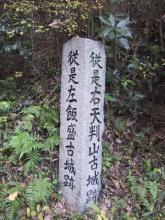 從是右天判山古城跡
從是左飯盛古城跡